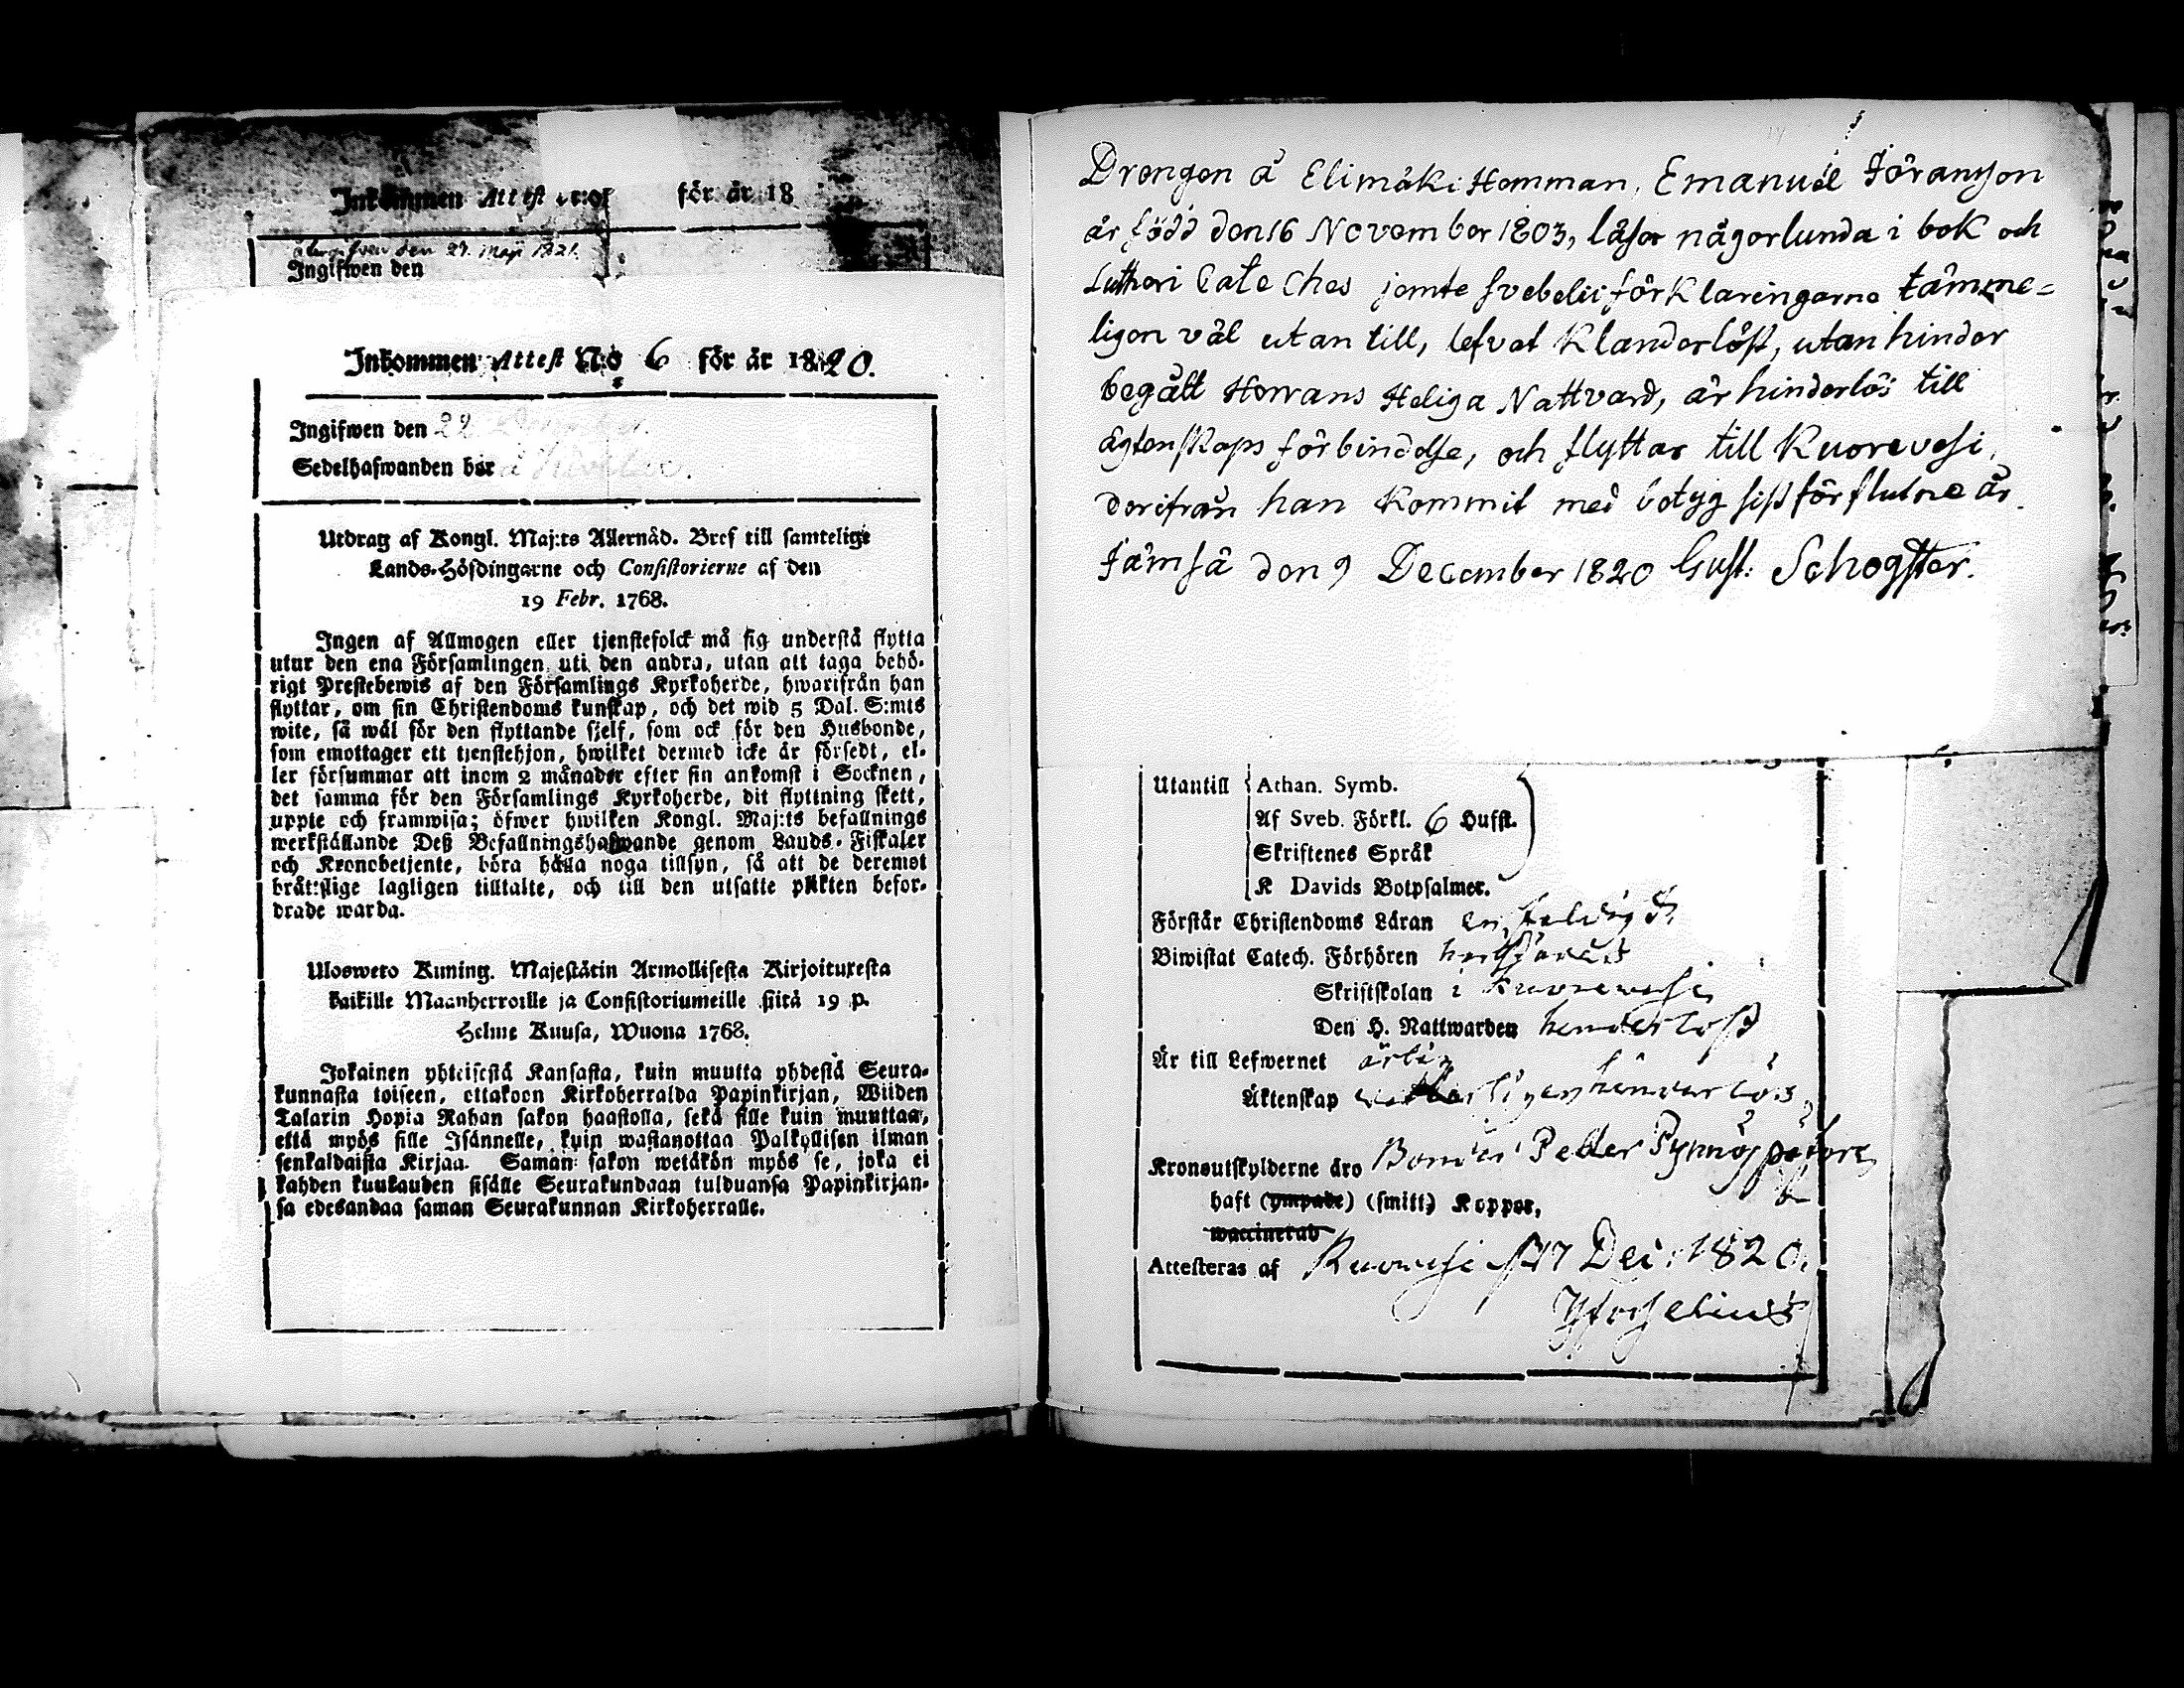 Inkommen Attest N:o för år 18
den 27. Maji 1821.
Ingifwen den
Inkommen Attest N:o 6 för år 1820.
Ingifwen den 22 December
Sedelhafwanden bor
Utdrag af Kongl. Maj:ts Allernåd. Bref till samtelige
Lands-Höfdingarne och Consistorierne af den
19 Febr. 1768.
Ingen af Allmogen eller tjenstefolck må sig understå flytta
utur den ena Församlingen uti den andra, utan att taga behö-
rigt Prestebewis af den Församlings Kyrkoherde, hwarifrån han
flyttar, om sin Christendoms kunskap, och det wid 5 Dal. S:mts
wite, så wäl för den flyttande sjelf, som ock för den Husbonde,
som emottager ett tjenstehjon, hwilket dermed icke är försedt, el-
ler försummar att inom 2 månader efter sin ankomst i Socknen,
det samma för den Församlings Kyrkoherde, dit flyttning skett,
uppte och framwisa; öfwer hwilken Kongl. Maj:ts befallnings
werkställande Deß Befallningshafwande genom Lands-Fiskaler
och Kronobetjente, böra hålla noga tillsyn, så att de deremot
brättslige lagligen tilltalte, och till den utsatte plikten befor-
drade warda.
Ulosweto Kuning. Majestätin Armollisesta Kirjoituxesta
kaikille Maanherroille ja Consistoriumeille siitä 19 p.
Helme Kuusa, Wuona 1768.
Jokainen yhteisestä Kansasta, kuin muutta yhdestä Seura-
kunnasta toiseen, ottakoon Kirkoherralda Papinkirjan, Wiiden
Talarin Hopia Rahan sakon haastolla, sekä sille kuin muuttaa,
että myös sille Isännelle, kuin wastanottaa Palkollisen ilman
senkaldaista Kirjaa. Saman sakon wetäkön myös se, joka ei
kahden kuukauden sisälle Seurakundaan tulduansa Papinkirjan-
sa edesandaa saman Seurakunnan Kirkoherralle.
Drengen å Elimäki Hemman, Emanuel Jöransson
är född den 16 November 1803, läser någorlunda i bok och
Lutheri Cateches jemte Svebelii förklaringarne tämme-
ligen väl utan till, lefvat klanderlöst, utan hinder
begått Herrans Heliga Nattvard, är hinderlös till
ägtenskaps förbindelse, och flyttar till Kuorevesi,
derifrån han kommit med betyg sistförflutne år.
Jämsä den 9 December 1820 Gust: Schogster.
Utantill Athan. Symb.
Af Sveb. Förkl. 6 Hufst.
Skriftenes Språk
K Davids Botpsalmer.
Förstår Christendoms Läran enfaldigt.
Biwistat Catech. Förhören
Skriftskolan i Kuorewesi
Den H. Nattwarden hinderlöst
Är till Lefwernet ärlig
Äktenskap hinderlös
Kronoutskylderne äro Bonden Petter
haft (ympade) (smitt) Koppor,
waccinerad
Attesteras af Kuorewesi d. 17 Dec: 1820.